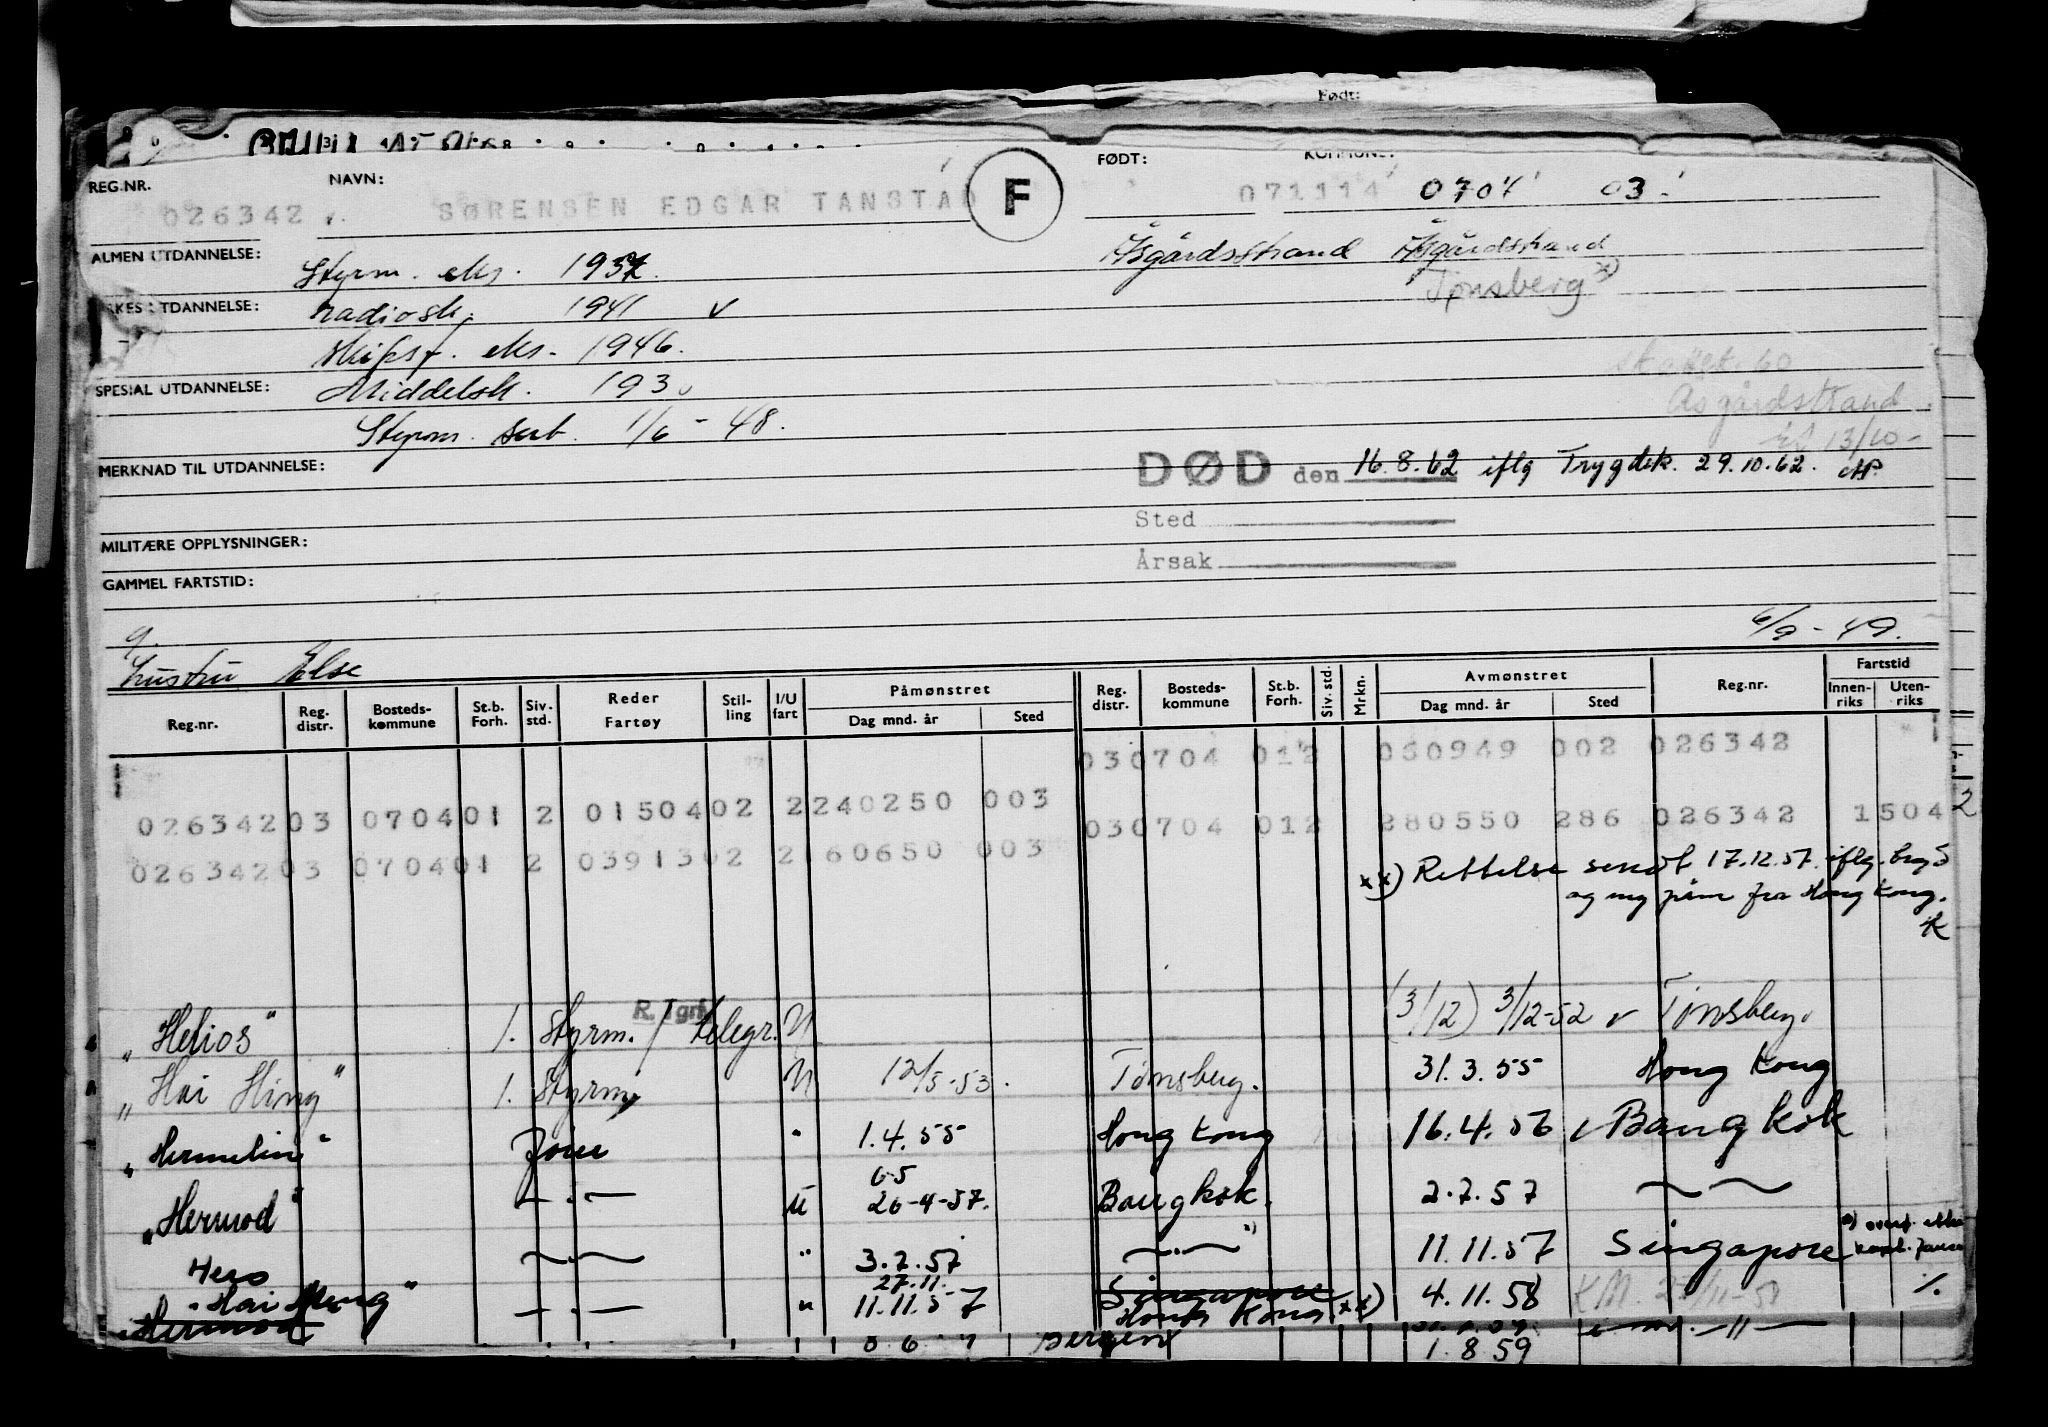 Født:
REG.NR. NAVN: F FØDT: KOMMUNE:
026342 SØRENSEN EDGAR TANSTAD 071114 0704 03
ALMEN UTDANNELSE: Styrm. eks. 1937 Åsgårdsstrand Åsgårdstrand
Tønsberg x)
UTDANNELSE: radiosk. 1941 v
skipsf. eks. 1946. 60
SPESIAL UTDANNELSE: Middelsk. 193 Åsgårdstrand
Styrm. sert. 1/6 - 48. 13/10-
MERKNAD TIL UTDANNELSE: DØD den 16.8.62 iflg Trygdek. 29.10.62.
Sted
MILITÆRE OPPLYSNINGER: Årsak
GAMMEL FARTSTID:
g. 6/9-49.
hustru Else
Reg.nr. Reg. distr. Bosteds-kommune St.b. Forh. Siv. std. Reder Fartøy Stil-ling I/U fart Påmønstret Dag mnd. år Sted Reg. distr. Bosteds-kommune St.b. Forh. Siv. std. Mrkn. Avmønstret Dag mnd. år Sted Reg.nr. Fartstid Innen-riks Uten-riks
030704 012 060949 002 026342
026342 03 0704 01 2 0150402 2 240250 003 030704 012 280550 286 026342 1504
026342 03 0704 01 2 0391302 2 160650 003
xx) Rettelse sendt 17.12.57. iflg. brev
og ny påm fra Hong Kong.
"Helios" 1. Styrm. / telegr. R.Tgrf U (3/12) 3/12-52 v Tønsberg.
"Hai Hing" 1. Styrm. U 12/5-53. Tønsberg. 31.3.55 Hong Kong
"Hermelin" Förer " 1.4.55 Hong Kong 16.4.56 Bangkok
"Hermod" — . — U 26-4-57. Bangkok. 2.7.57 — " —
Hero — . — " 3.7.57 — " — 11.11.57 Singapore
"Hai Meng" — . — " 27.11. 11.11.57 Singapore Hong Kong xx) 4.11.58 K.M.
Hermod Bergen 1.8.59 — " —